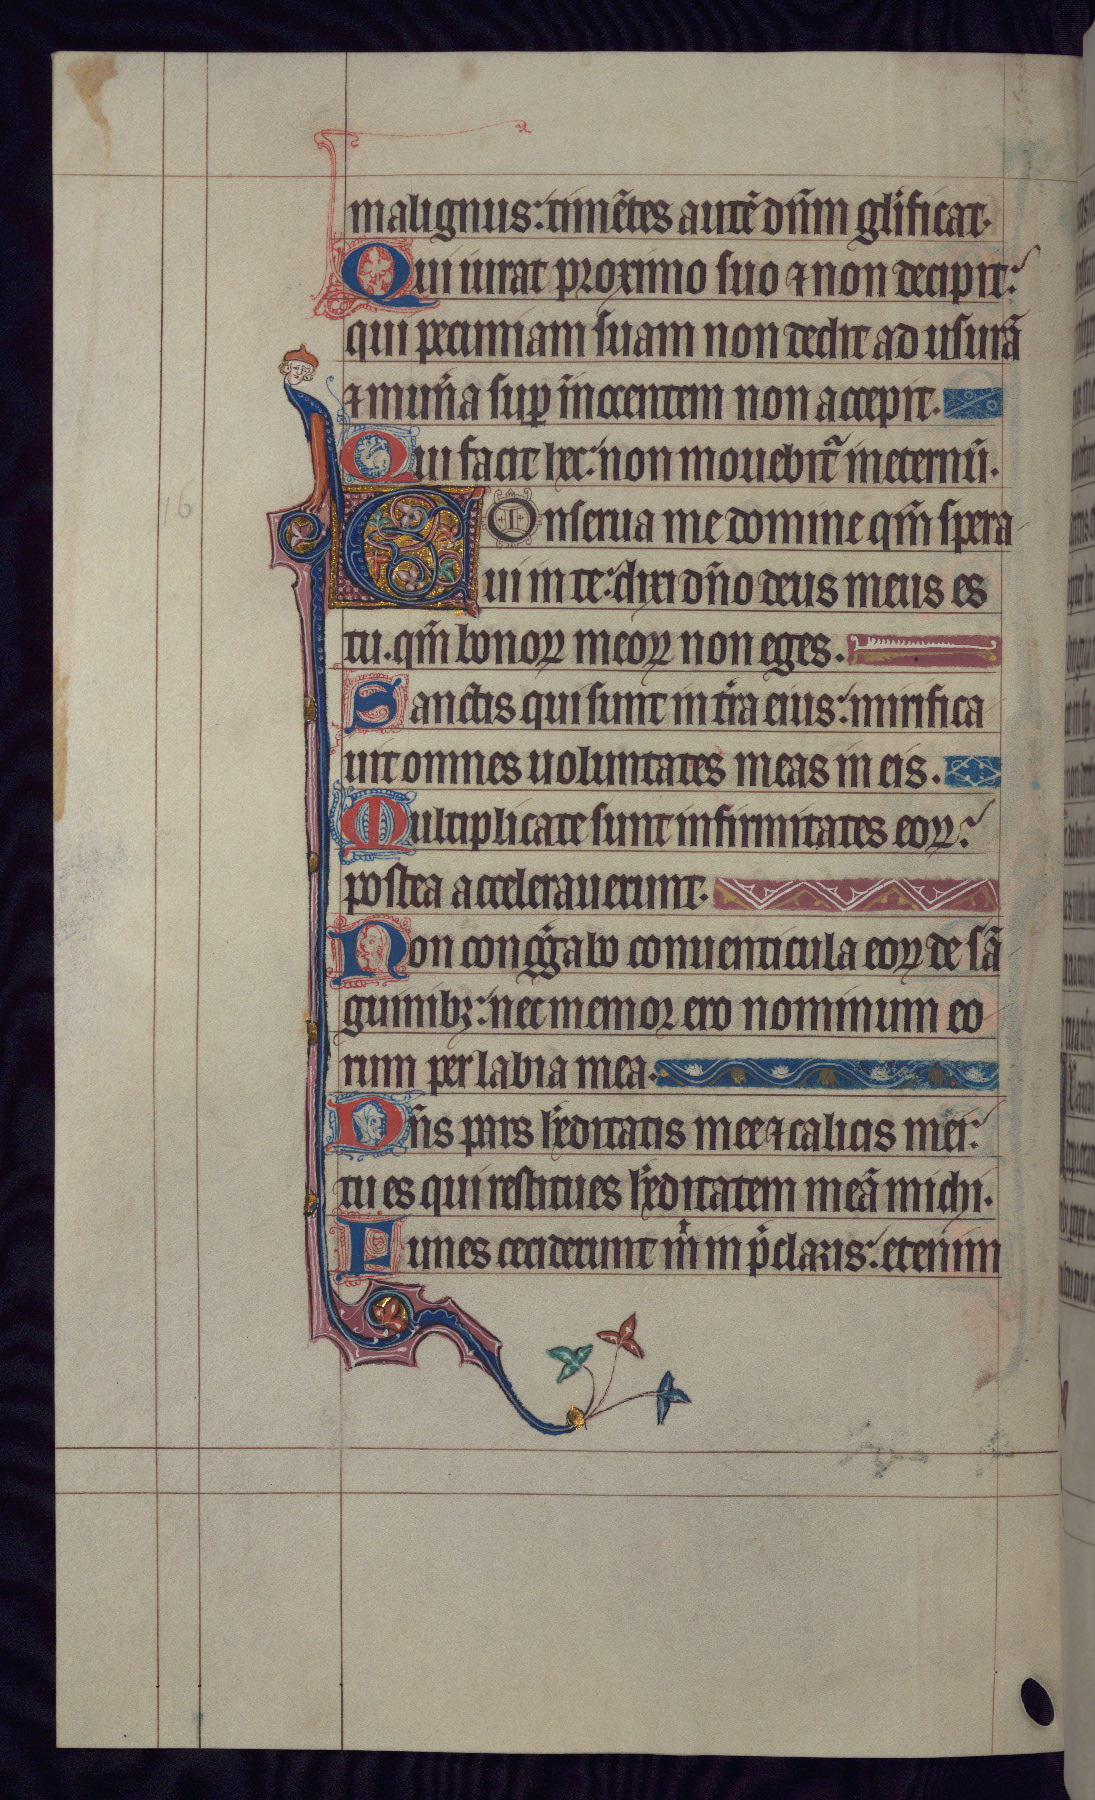 malignus: timẽtes autẽ dñm glificat.
Qui iurat proximo suo ⁊ non decipit:
qui pecuniam suam non dedit ad usurã
⁊ muña sup ĩnocentem non accepit.
Qui facit hec: non mouebit᷑ in eternũ.
16
Conserua me domine qm̃ spera
ui in te: dixi dño deus meus es
tu. qm̃ bonoꝝ meoꝝ non eges.
Sanctis qui sunt in t̃ra eius: mirifica
uit omnes uoluntates meas in eis.
Multiplicate sunt infirmitates eoꝝ:
postea accelerauerunt.
Non cong̃gabo conuenticula eoꝝ de sã
guinibꝫ: nec memor ero nominum eo
rum per labia mea.
Dñs pars h̃editatis mee ⁊ calicis mei:
tu es qui restitues h̃editatem meã michi.
Funes ceciderunt m̃ in p̃claris: etenim